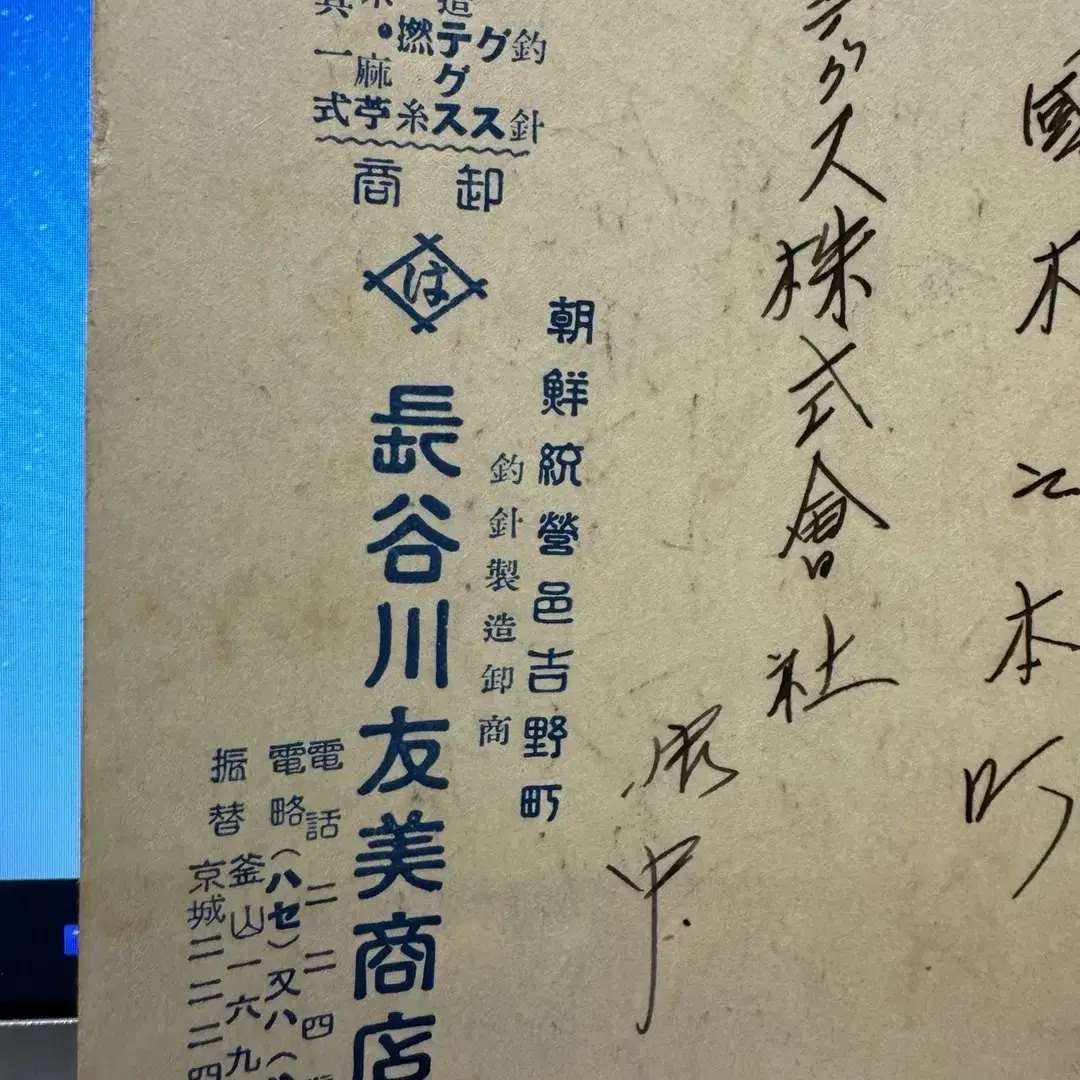 國木江本町
テグス株式會社
御中
朝鮮統營邑吉野町
釣針製造卸商
釣針
グス
造テグス
撚糸
麻苧
具一式
卸商
は
長谷川友美商店
電話二二四
電略(ハセ)又ハ(
振替釜山一六九
京城二二二四